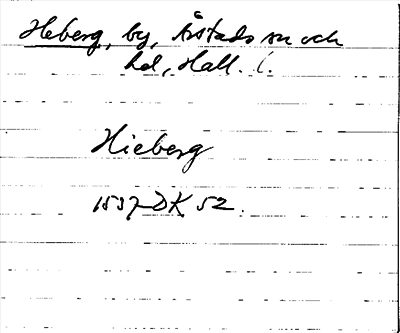 Heberg, by, Årstads sn och
hd, Hall. l.
Hieberg
1537 DK 52.